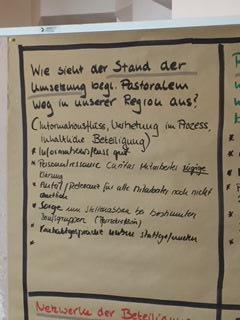 Wie sieht der Stand der
Umsetzung bzgl. Pastoralem
Weg in unserer Region aus?
(Informationsfluss, Vernetzung im Prozess,
Inhaltliche Beteiligung)
* Informationsfluss gut
* Personalressource Caritas Mitarbeiter
klärung
* Relevant für alle Mitarbeiter noch nicht
deutlich
* Sorge um Stellenabbau bei bestimmten
Berufsgruppen
*
*
Netzwerke der Beteiligung